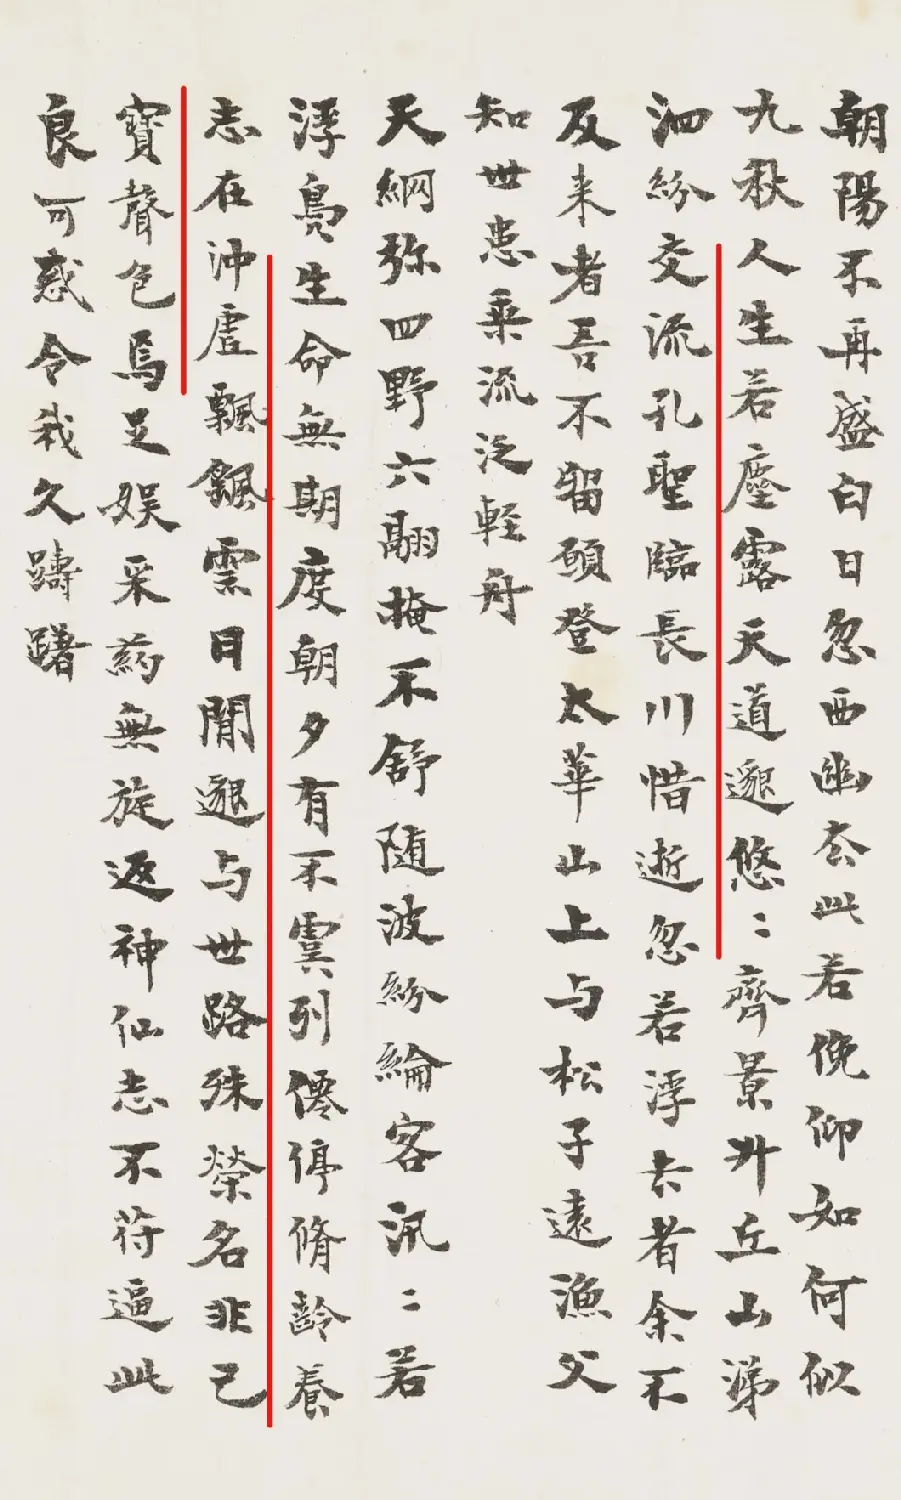 朝陽不再盛白日忽西幽去此若俛仰如何似
九秋人生若塵露天道邈悠〻齊景升丘山涕
泗紛交流孔聖臨長川惜逝忽若浮去者余不
反来者吾不留願登太華山上与松子遠漁父
知世患乗流泛軽舟
天網弥四野六翮掩不舒随波紛綸客汎〻若
浮鳬生命無期度朝夕有不虞列僊停脩齡養
志在沖虛飄颻雲日間邈与世路殊榮名非己
寶聲色焉足娯采葯無旋返神仙志不符逼此
良可惑令我久躊躇